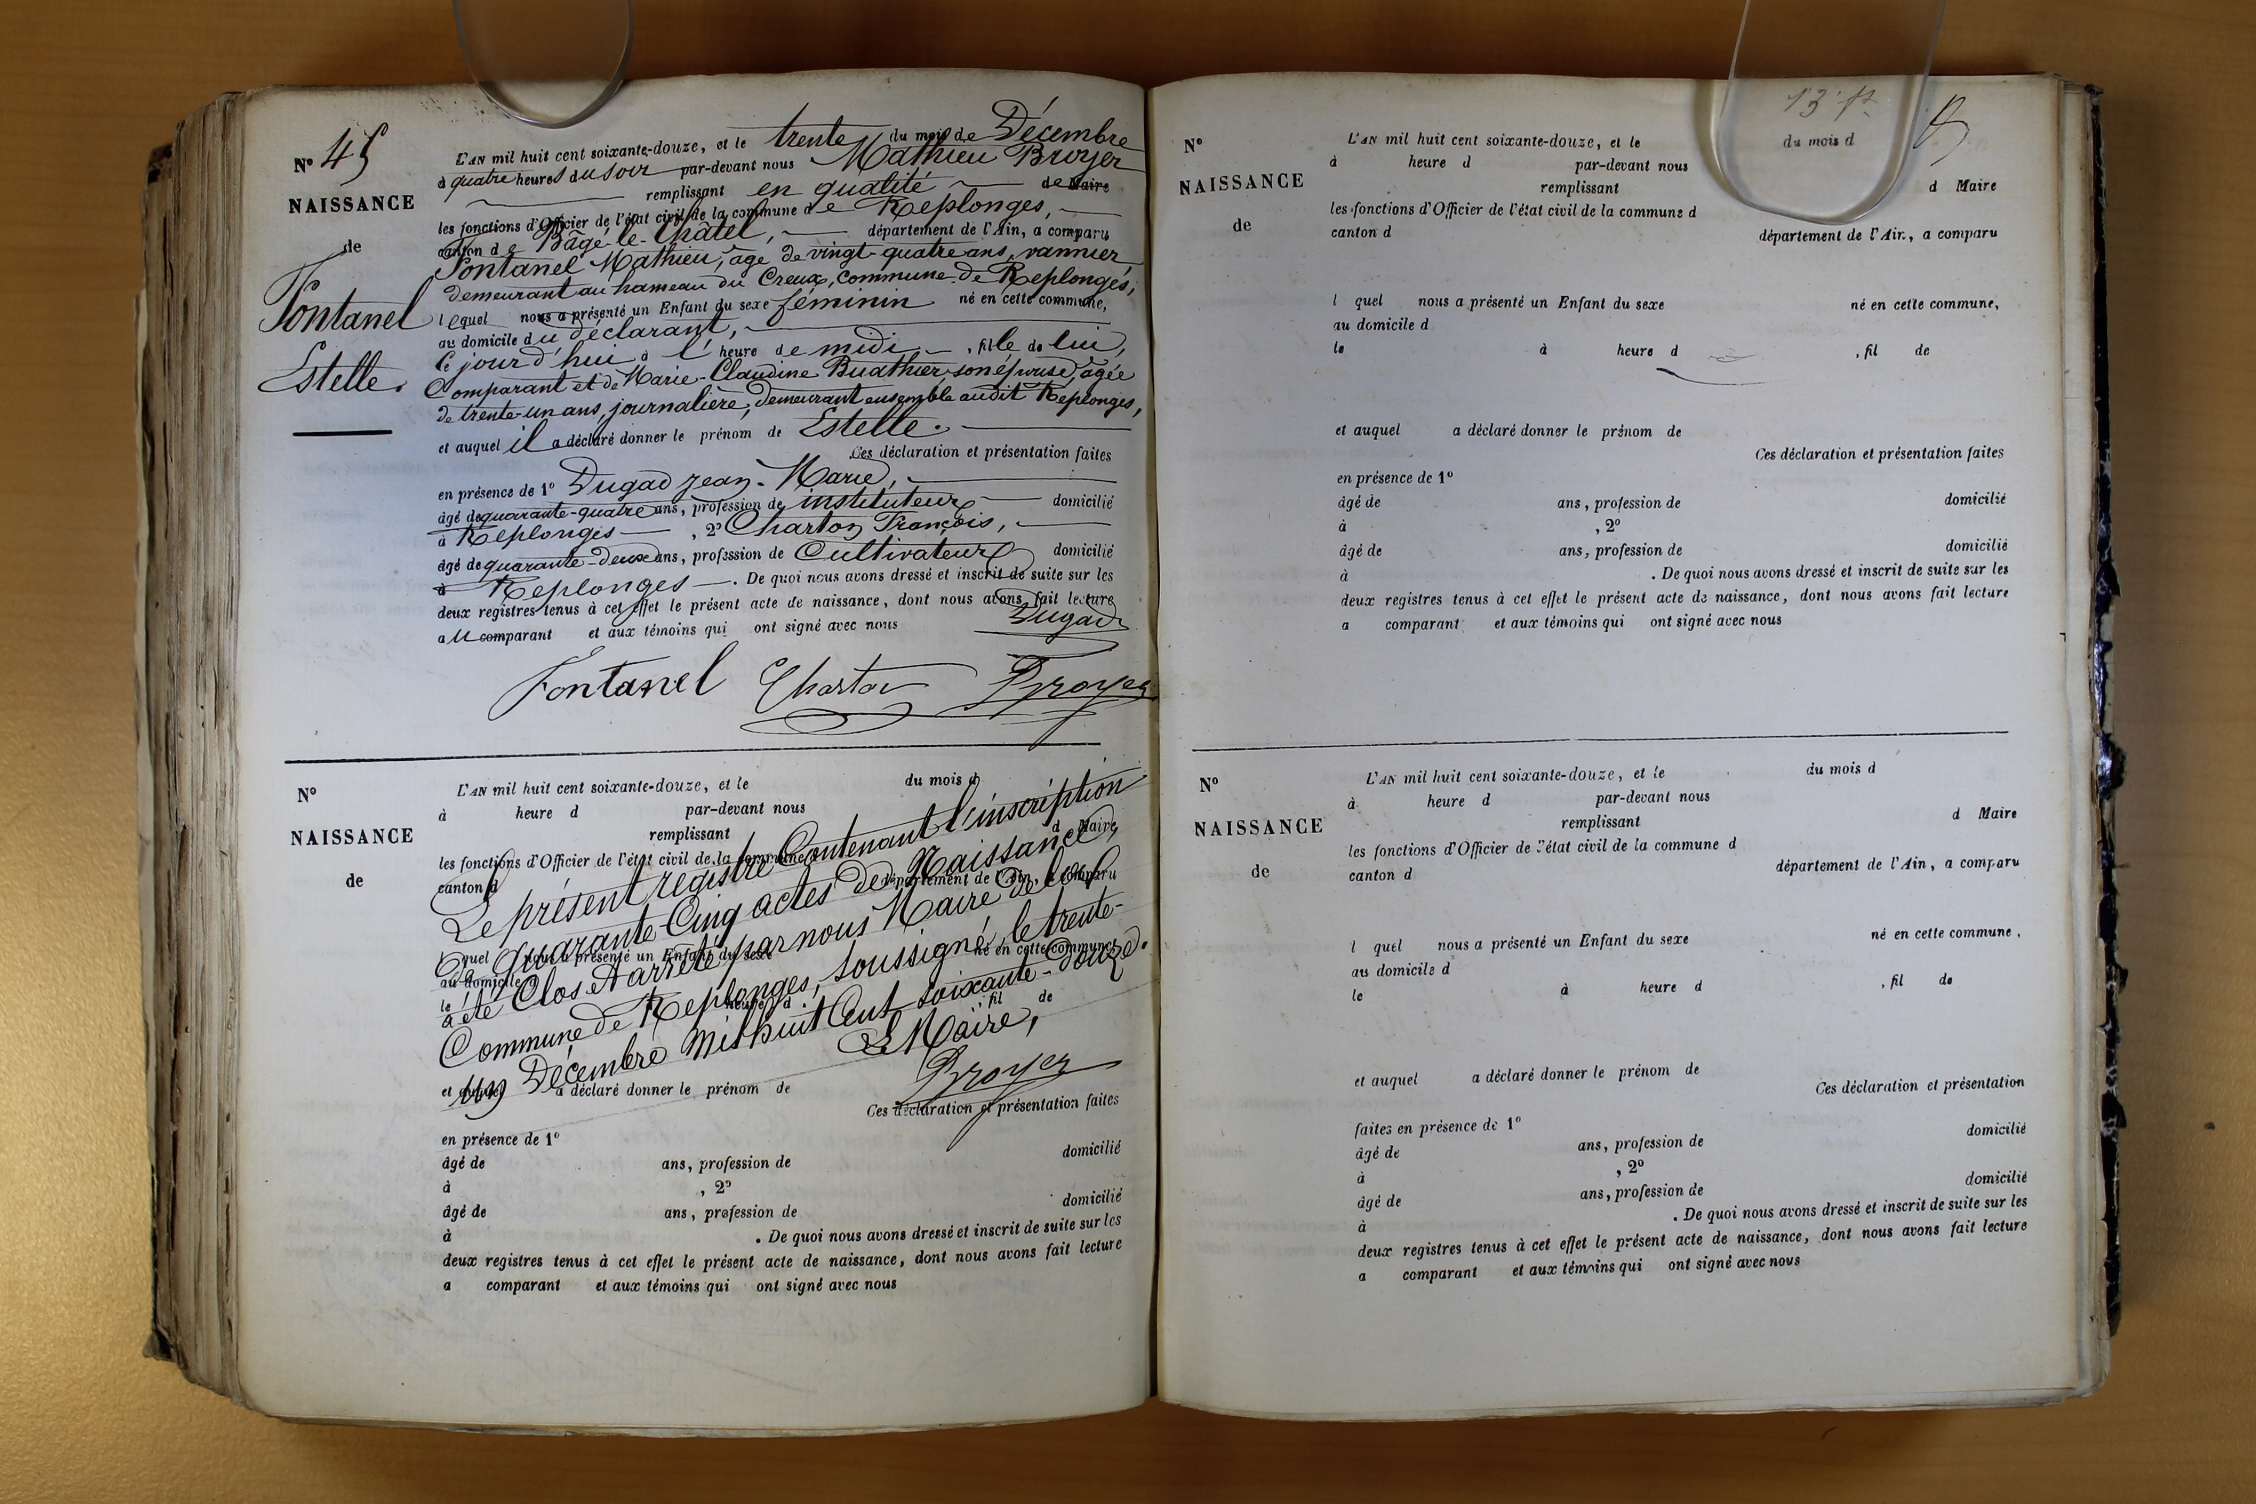 N° 45
NAISSANCE
de
Fontanel
Estelle.
L'AN mil huit cent soixante-douze, et le trente du mois de Décembre
à quatre heures du soir par-devant nous Mathieu Broyer
remplissant en qualité de Maire
les fonctions d'Officier de l'état civil de la commune de Replonges,
canton de Bâgé-le-Châtel, département de l'Ain, a comparu
Fontanel Mathieu, âgé de vingt-quatre ans, vannier,
demeurant au hameau du Creux, commune de Replonges,
lequel nous a présenté un Enfant du sexe féminin né en cette commune,
au domicile du déclarant,
ce jour d'hui à l' heure de midi, fille de lui,
Comparant et de Marie-Claudine Buathier son épouse, âgée
de trente-un ans, journalière, demeurant ensemble audit Replonges,
et auquel il a déclaré donner le prénom de Estelle.
Ces déclaration et présentation faites
en présence de 1° Dugad Jean-Marie,
âgé de quarante-quatre ans, profession de instituteur domicilié
à Replonges, 2° Charton François,
âgé de quarante-deux ans, profession de Cultivateur domicilié
à Replonges. De quoi nous avons dressé et inscrit de suite sur les
deux registres tenus à cet effet le présent acte de naissance, dont nous avons fait lecture
au comparant et aux témoins qui ont signé avec nous
Dugad
Fontanel Charton Broyer
N°
NAISSANCE
de
L'AN mil huit cent soixante-douze, et le du mois d
à heure d par-devant nous
remplissant d Maire
les fonctions d'Officier de l'état civil de la commune d
canton d département de l'Ain, a comparu
Le présent registre Contenant l'inscription
de quarante-Cinq actes de Naissance,
l quel nous a présenté un Enfant du sexe né en cette commune,
au domicile d
le heure d , fil de
a été Clos et arrêté par nous Maire de la
Commune de Replonges, soussigné, le trente-
un Décembre mil huit Cent soixante-douze.
Le Maire,
Broyer
et auquel a déclaré donner le prénom de
Ces déclaration et présentation faites
en présence de 1°
âgé de ans, profession de domicilié
à , 2°
âgé de ans, profession de domicilié
à . De quoi nous avons dressé et inscrit de suite sur les
deux registres tenus à cet effet le présent acte de naissance, dont nous avons fait lecture
a comparant et aux témoins qui ont signé avec nous
N°
NAISSANCE
de
L'AN mil huit cent soixante-douze, et le du mois d
à heure d par-devant nous
remplissant d Maire
les fonctions d'Officier de l'état civil de la commune d
canton d département de l'Ain, a comparu
l quel nous a présenté un Enfant du sexe né en cette commune,
au domicile d
le à heure d , fil de
et auquel a déclaré donner le prénom de
Ces déclaration et présentation faites
en présence de 1°
âgé de ans, profession de domicilié
à , 2°
âgé de ans, profession de domicilié
à . De quoi nous avons dressé et inscrit de suite sur les
deux registres tenus à cet effet le présent acte de naissance, dont nous avons fait lecture
a comparant et aux témoins qui ont signé avec nous
N°
NAISSANCE
de
L'AN mil huit cent soixante-douze, et le du mois d
à heure d par-devant nous
remplissant d Maire
les fonctions d'Officier de l'état civil de la commune d
canton d département de l'Ain, a comparu
l quel nous a présenté un Enfant du sexe né en cette commune,
au domicile d
le à heure d , fil de
et auquel a déclaré donner le prénom de
Ces déclaration et présentation
faites en présence de 1°
âgé de ans, profession de domicilié
à , 2°
âgé de ans, profession de domicilié
à . De quoi nous avons dressé et inscrit de suite sur les
deux registres tenus à cet effet le présent acte de naissance, dont nous avons fait lecture
a comparant et aux témoins qui ont signé avec nous